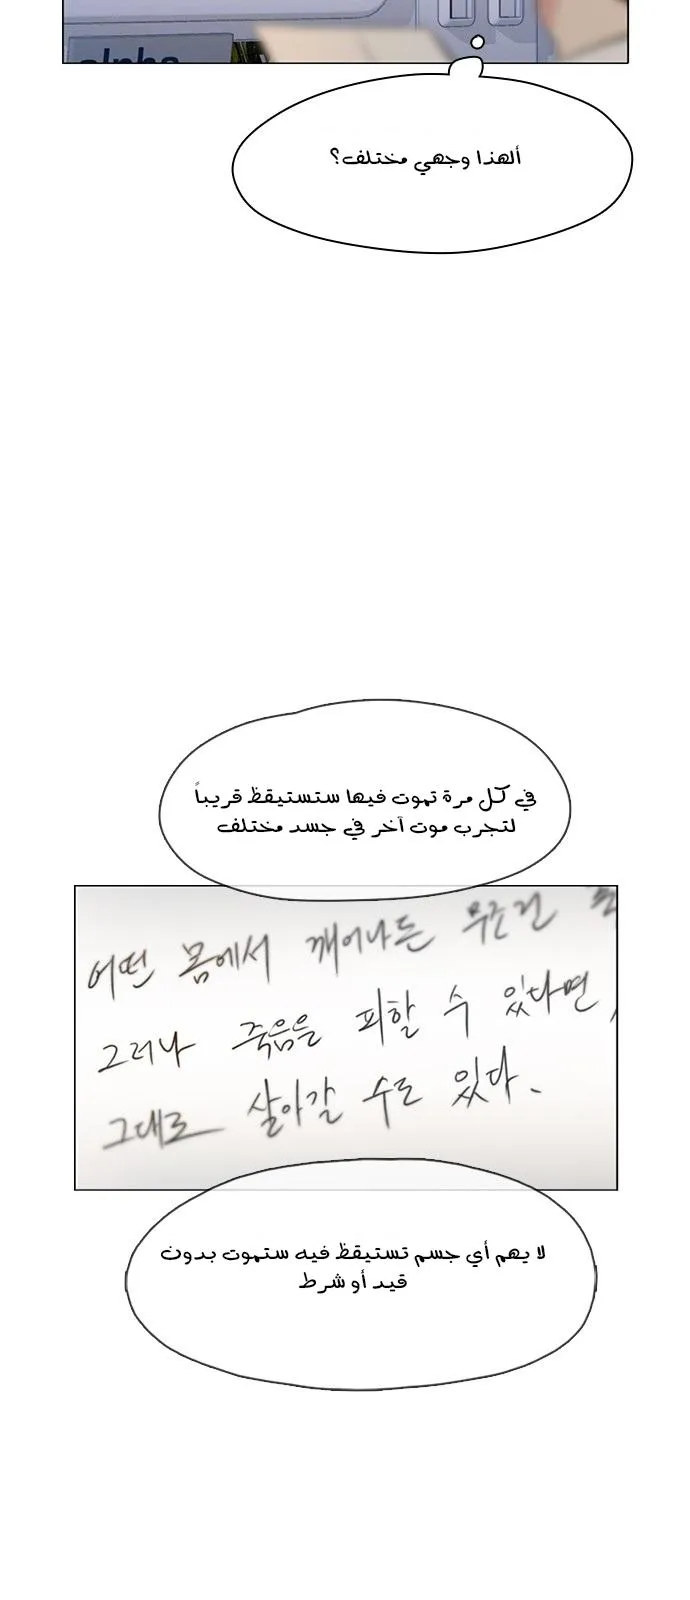 alpha
ألهذا وجهي مختلف؟
في كل مرة تموت فيها ستستيقظ قريباً
لتجرب موت آخر في جسد مختلف
어떤 몸에서 깨어나든 무조건
그러나 죽음을 피할 수 있다면,
그대로 살아갈 수도 있다.
لا يهم أي جسم تستيقظ فيه ستموت بدون
قيد أو شرط